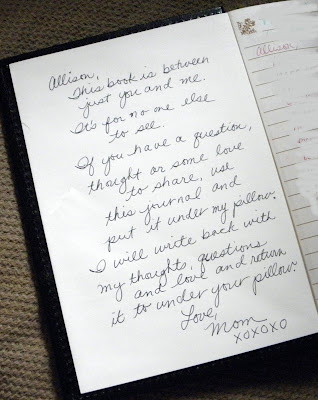 Allison,
This book is between
just you and me.
It's for no one else
to see.
If you have a question,
thought or some love
to share, use
this journal and
put it under my pillow.
I will write back with
my thoughts, questions
and love and return
it to under your pillow.
Love,
Mom
xoxoxo
Allison,